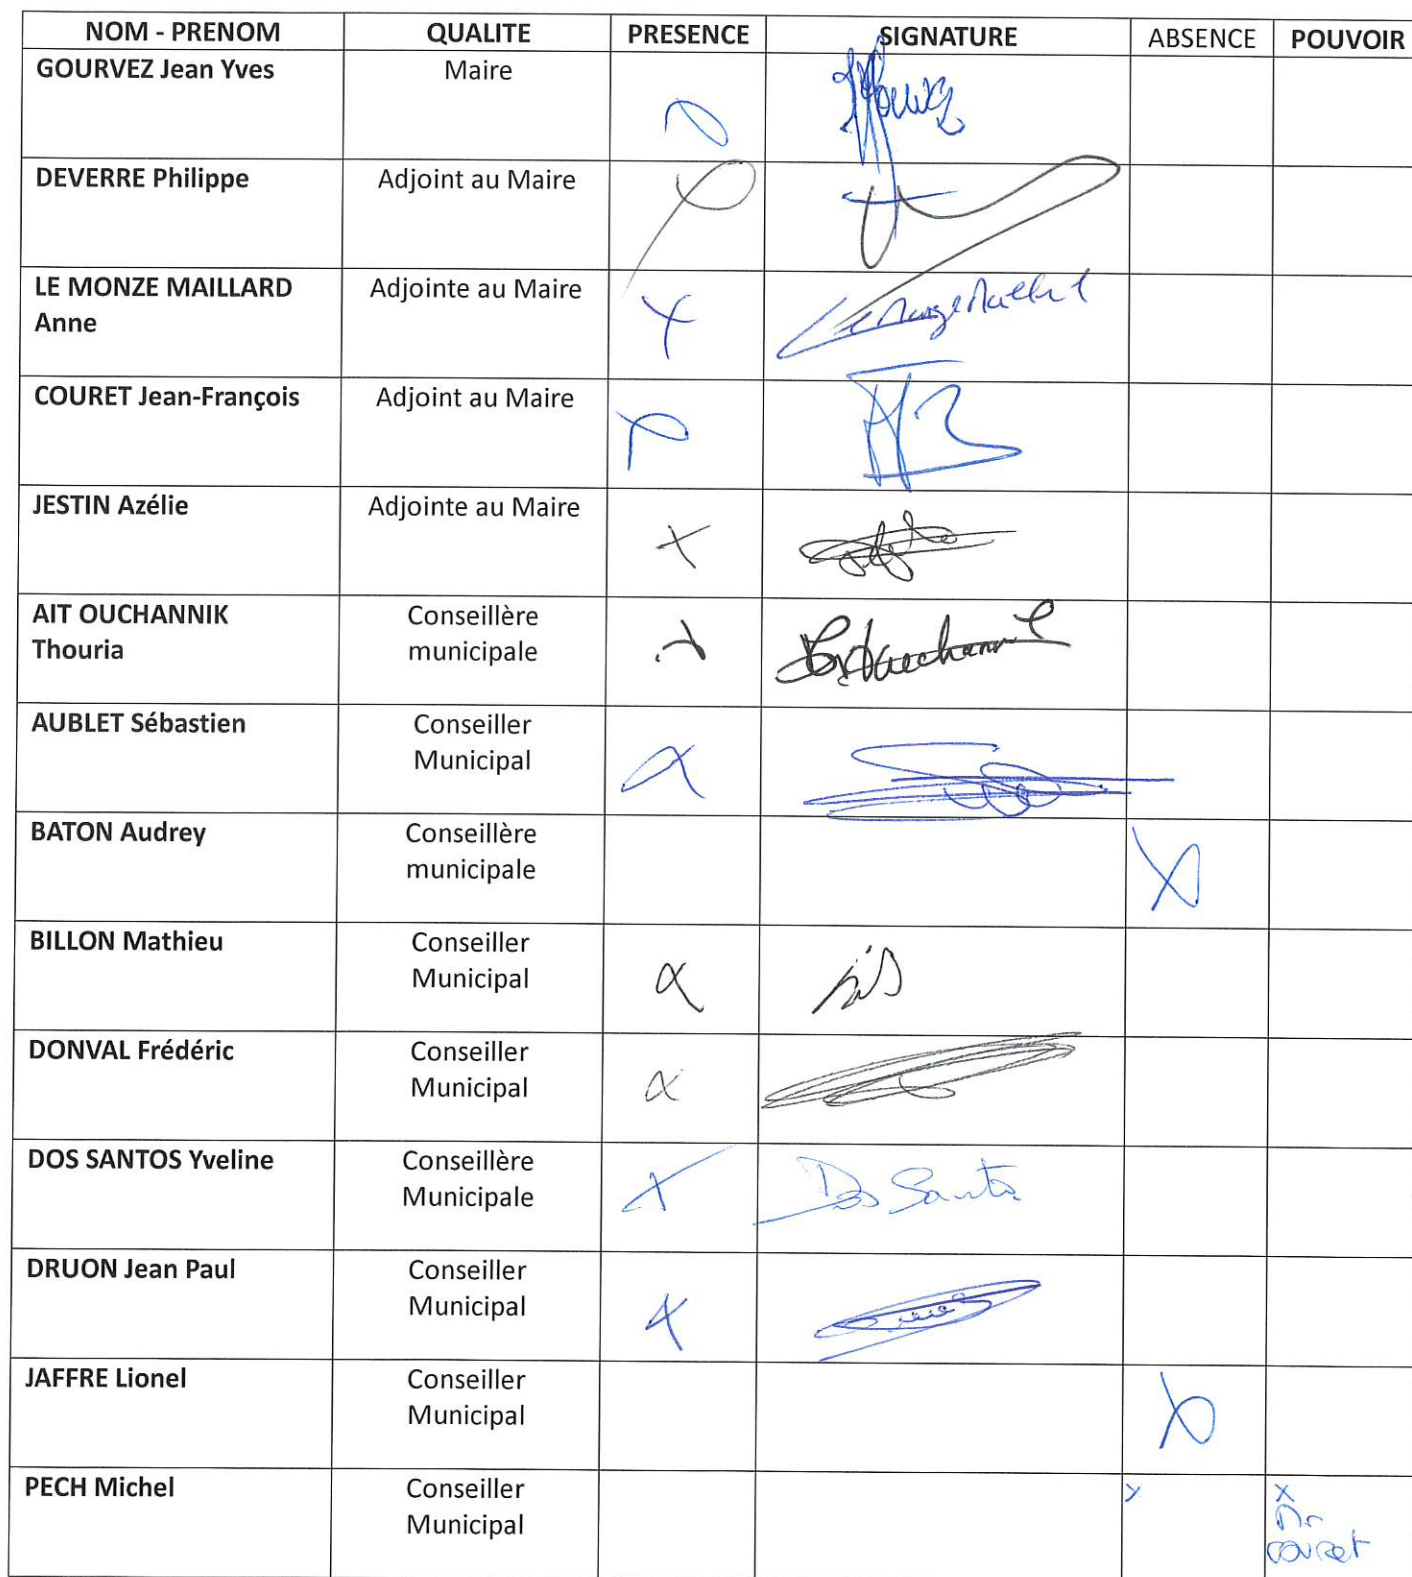 NOM - PRENOM QUALITE PRESENCE SIGNATURE ABSENCE POUVOIR
GOURVEZ Jean Yves Maire
DEVERRE Philippe Adjoint au Maire
LE MONZE MAILLARD Adjointe au Maire
Anne
COURET Jean-François Adjoint au Maire
JESTIN Azélie Adjointe au Maire
AIT OUCHANNIK Conseillère
Thouria municipale
AUBLET Sébastien Conseiller
Municipal
BATON Audrey Conseillère
municipale X
BILLON Mathieu Conseiller
Municipal
DONVAL Frédéric Conseiller
Municipal
DOS SANTOS Yveline Conseillère
Municipale X Dos Santos
DRUON Jean Paul Conseiller
Municipal X
JAFFRE Lionel Conseiller
Municipal X
PECH Michel Conseiller X X
Municipal Mr
couret